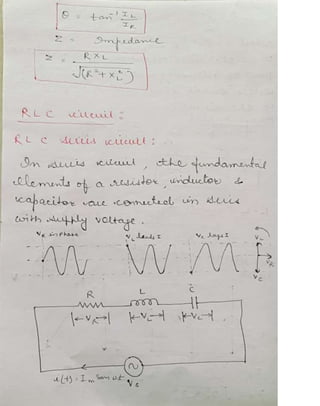 θ = tan⁻¹ I_L / I_R
Z = Impedance
Z = R X_L / √(R² + X_L²)
RLC circuit:
RLC series circuit:
In series circuit, the fundamental
elements of a resistor, inductor &
capacitor are connected in series
with supply voltage.
V_R in phase V_L leads I V_C lags I
V_L V_R V_C
R L C
V_R V_L V_C
i(t) = I_m sin ωt V_S